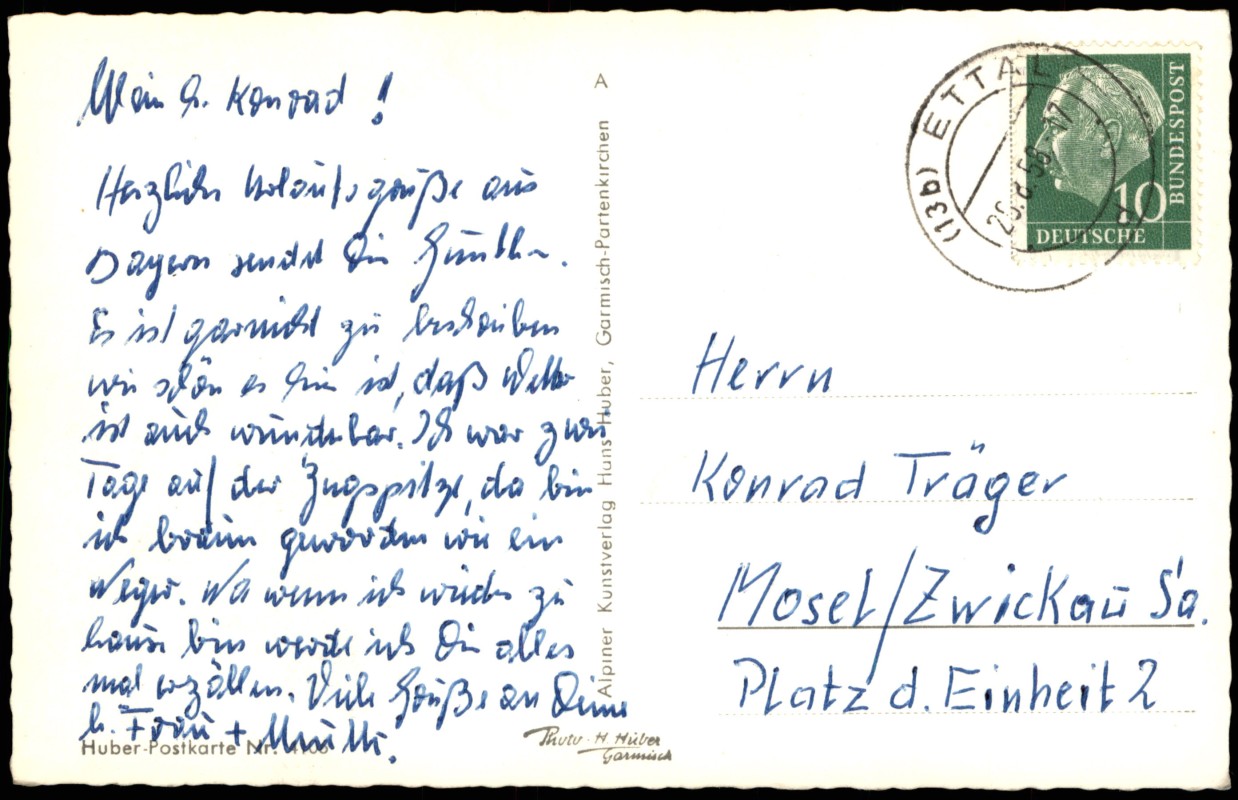 Mein l. Konrad!
Herzliche Urlaubsgrüße aus
Bayern sendet Dir Günther.
Es ist garnicht zu beschreiben
wie schön es hier ist, daß Wetter
ist auch wunderbar. Ich war zwei
Tage auf der Zugspitze, da bin
ich braun geworden wie ein
Neger. Na wenn ich wieder zu
hause bin werde ich Dir alles
mal erzällen. Viele Grüße an Deine
l. Frau + Mutti.
Huber-Postkarte Nr.
Photo H. Huber
Garmisch
A
Alpiner Kunstverlag Hans Huber, Garmisch-Partenkirchen
(13b) ETTAL
.58-17
BUNDESPOST
10
DEUTSCHE
Herrn
Konrad Träger
Mosel/Zwickau Sa.
Platz d. Einheit 2